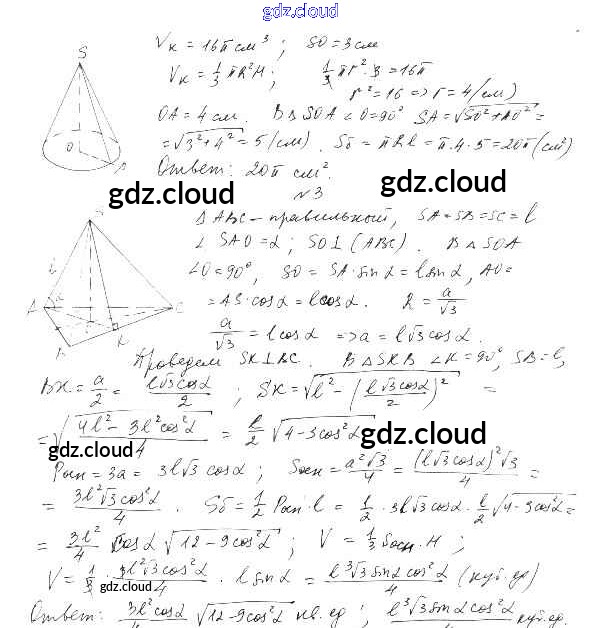 gdz.cloud
Vк = 16π см³ ; SO = 3 см
Vк = 1/3 πR²H ; 1/3 πr²·3 = 16π
r² = 16 => r = 4 (см)
OA = 4 см. В △ SOA ∠O = 90° SA = √(SO² + AO²) =
= √(3² + 4²) = 5 (см). Sб = πRl = π·4·5 = 20π (см²)
Ответ: 20π см².
gdz.cloud
gdz.cloud
№3
△ ABC – правильный, SA = SB = SC = l
∠ SAO = α ; SO ⊥ (ABC). В △ SOA
∠O = 90°, SO = SA·sin α = l sin α, AO =
= AS·cos α = l cos α. R = a/√3
a/√3 = l cos α => a = l√3 cos α.
Проведем SK ⊥ BC. В △ SKB ∠K = 90°, SB = l,
BK = a/2 = l√3 cos α/2 ; SK = √(l² – (l√3 cos α/2)²) =
= √((4l² – 3l² cos² α)/4) = l/2 √(4 – 3 cos² α)
gdz.cloud
gdz.cloud
Pосн = 3a = 3l√3 cos α ; Sосн = a²√3/4 = (l√3 cos α)²√3/4 =
= 3l²√3 cos² α/4 . Sб = 1/2 Pосн·l = 1/2 · 3l√3 cos α · l/2 √(4 – 3 cos² α =
= 3l²/4 cos α √(12 – 9 cos² α) ; V = 1/3 Sосн·H ;
V = 1/3 · 3l²√3 cos² α/4 · l sin α = l³√3 sin α cos² α/4 (куб.ед)
gdz.cloud
Ответ: 3l² cos α/4 √(12 – 9 cos² α) кв.ед ; l³√3 sin α cos² α/4 куб.ед.
S
O
A
S
l
α
A
O
C
B
K